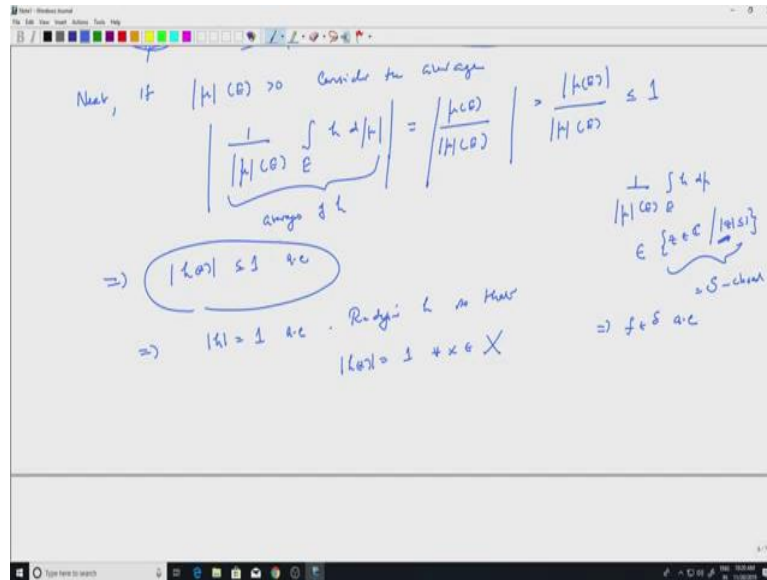 Note1 - Windows Journal
File Edit View Insert Actions Tools Help
Next, if |μ|(E) >0 Consider the average
| 1/|μ|(E) ∫_E h d|μ| | = | μ(E)/|μ|(E) | = |μ(E)|/|μ|(E) ≤ 1
average of h
1/|μ|(E) ∫_E h dμ
∈ {z ∈ ℂ / |z| ≤ 1}
= S - closed
⇒) |h(x)| ≤ 1 a.e
⇒) |h| = 1 a.e. Redefine h so that
|h(x)| = 1 ∀ x ∈ X
⇒) f ∈ S a.e
Type here to search
ENG 10:20 AM